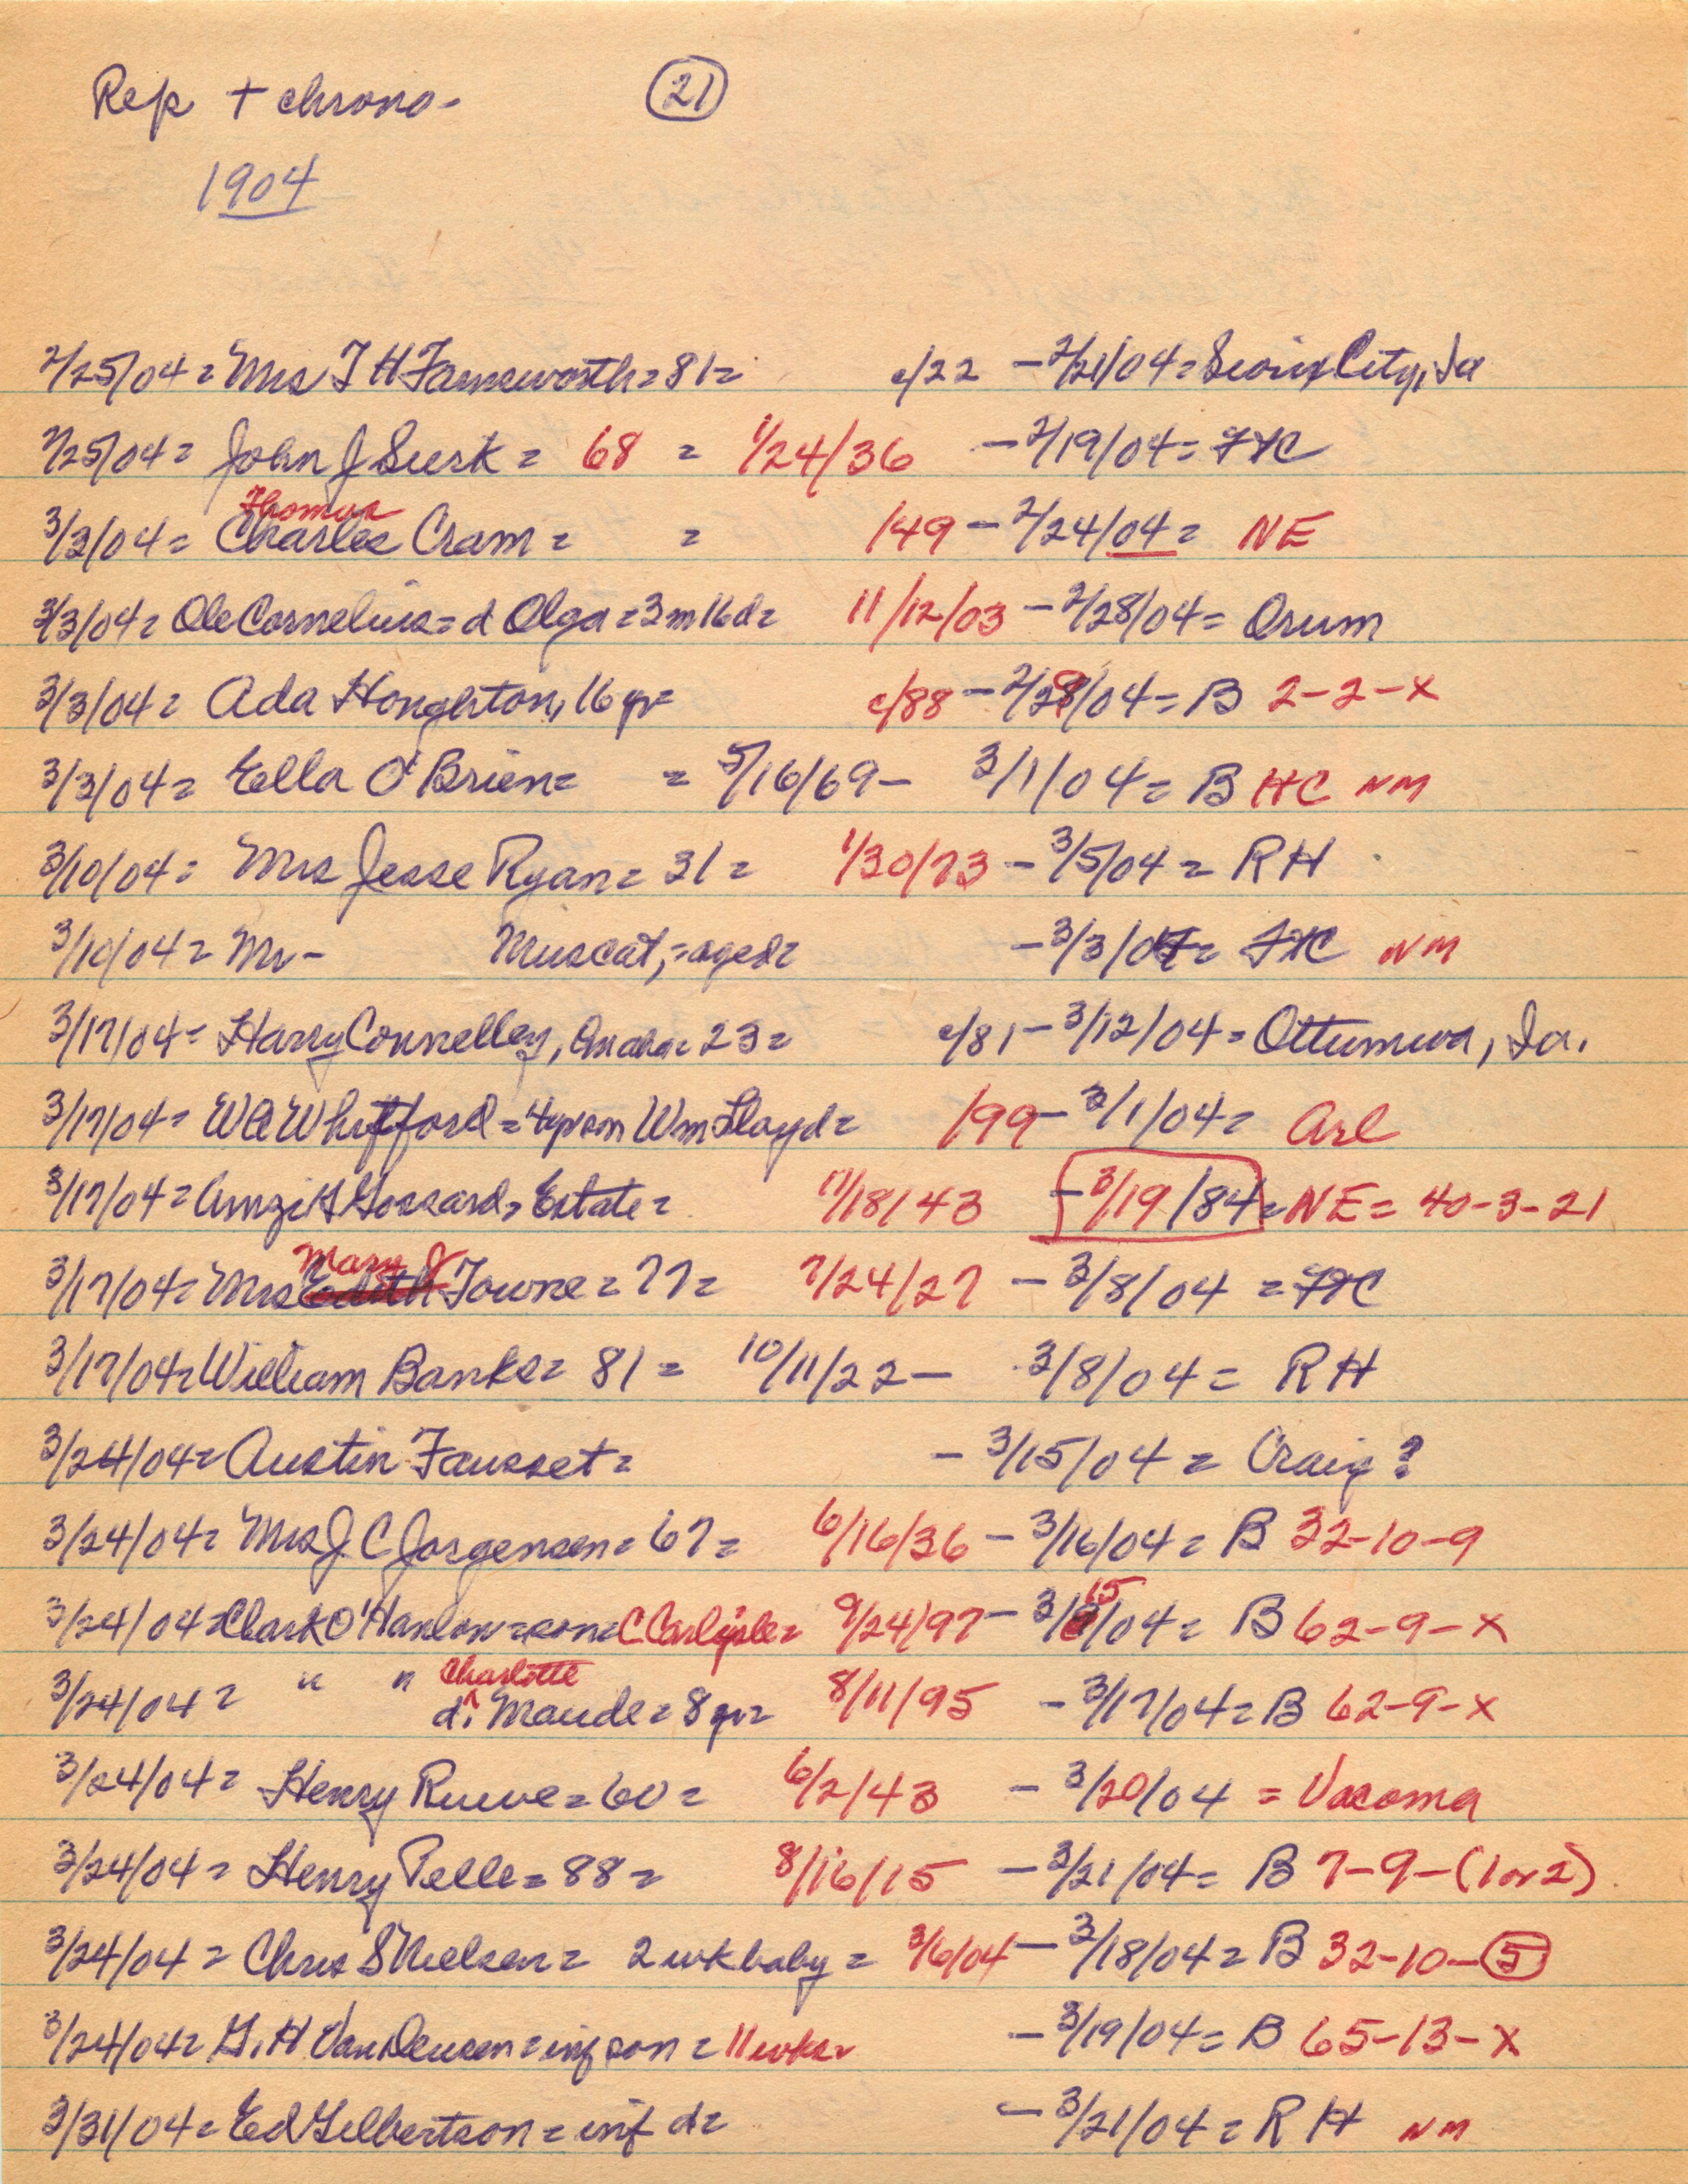 Rep + chrono- 21
1904
2/25/04 = Mrs T H Farnsworth = 81 = c/22 - 2/21/04 = Sioux City, Ia
2/25/04 = John J Surk = 68 = 1/24/36 - 2/19/04 = FtC
Thomas
3/3/04 = Charles Cram = = /49 - 2/24/04 = NE
3/3/04 = Ole Cornelius = d Olga = 3m16d = 11/12/03 - 2/28/04 = Orum
3/3/04 = Ada Houghton, 16 yr = c/88 - 2/28/04 = B 2-2-X
3/3/04 = Ella O'Brien = = 5/16/69 - 3/1/04 = B HC NM
3/10/04 = Mrs Jesse Ryan = 31 = 1/30/73 - 3/5/04 = RH
3/10/04 = Mr - Muscat, = aged = - 3/3/04 = FtC NM
3/17/04 = Harry Connelley, Omaha = 23 = c/81 - 3/12/04 = Ottumwa, Ia.
3/17/04 = W A Whitford = 4yr son Wm Lloyd = /99 - 3/1/04 = Arl
3/17/04 = Amzi H Gossard, Estate = 11/18/43 - 3/19/84 = NE = 40-3-21
Mary J
3/17/04 = Mrs Edith Towne = 77 = 7/24/27 - 3/8/04 = FtC
3/17/04 = William Banks = 81 = 10/11/22 - 3/8/04 = RH
3/24/04 = Austin Fausset = - 3/15/04 = Craig ?
3/24/04 = Mrs J C Jorgensen = 67 = 6/16/36 - 3/16/04 = B 32-10-9
15
3/24/04 = Clark O'Hanlon = son = C Carlisle = 9/24/97 - 3/ /04 = B 62-9-X
Charlotte
3/24/04 = " " d. Maude = 8 yr = 8/11/95 - 3/17/04 = B 62-9-X
3/24/04 = Henry Ruwe = 60 = 6/2/43 - 3/20/04 = Vacoma
3/24/04 = Henry Pelle = 88 = 8/16/15 - 3/21/04 = B 7-9-(1 or 2)
3/24/04 = Chris S Nielsen = 2 wk baby = 3/6/04 - 3/18/04 = B 32-10-5
3/24/04 = G. H VanDeusen = inf son = 11 wks = - 3/19/04 = B 65-13-X
3/31/04 = Ed Gilbertson = inf d = - 3/21/04 = RH NM